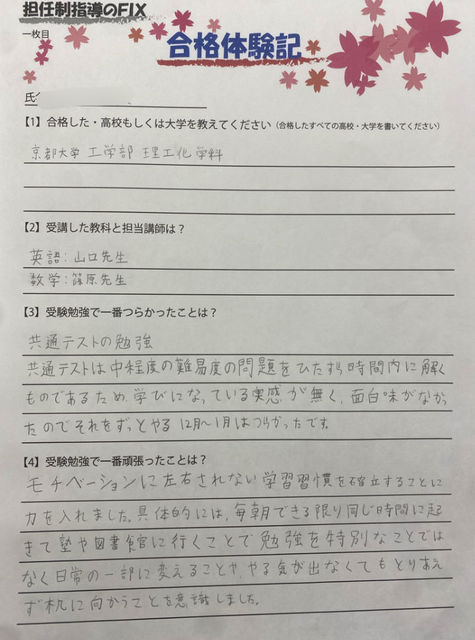 担任制指導のFIX
一枚目
合格体験記
氏
【1】合格した・高校もしくは大学を教えてください（合格したすべての高校・大学を書いてください）
京都大学 工学部 理工化学科
【2】受講した教科と担当講師は？
英語：山口先生
数学：篠原先生
【3】受験勉強で一番つらかったことは？
共通テストの勉強
共通テストは中程度の難易度の問題をひたすら時間内に解く
ものであるため、学びになっている実感が無く、面白味がなかっ
たのでそれをずっとやる12月〜1月はつらかったです。
【4】受験勉強で一番頑張ったことは？
モチベーションに左右されない学習習慣を確立することに
力を入れました。具体的には、毎朝できる限り同じ時間に起
きて塾や図書館に行くことで勉強を特別なことでは
なく日常の一部に変えることや、やる気が出なくてもとりあえ
ず机に向かうことを意識しました。